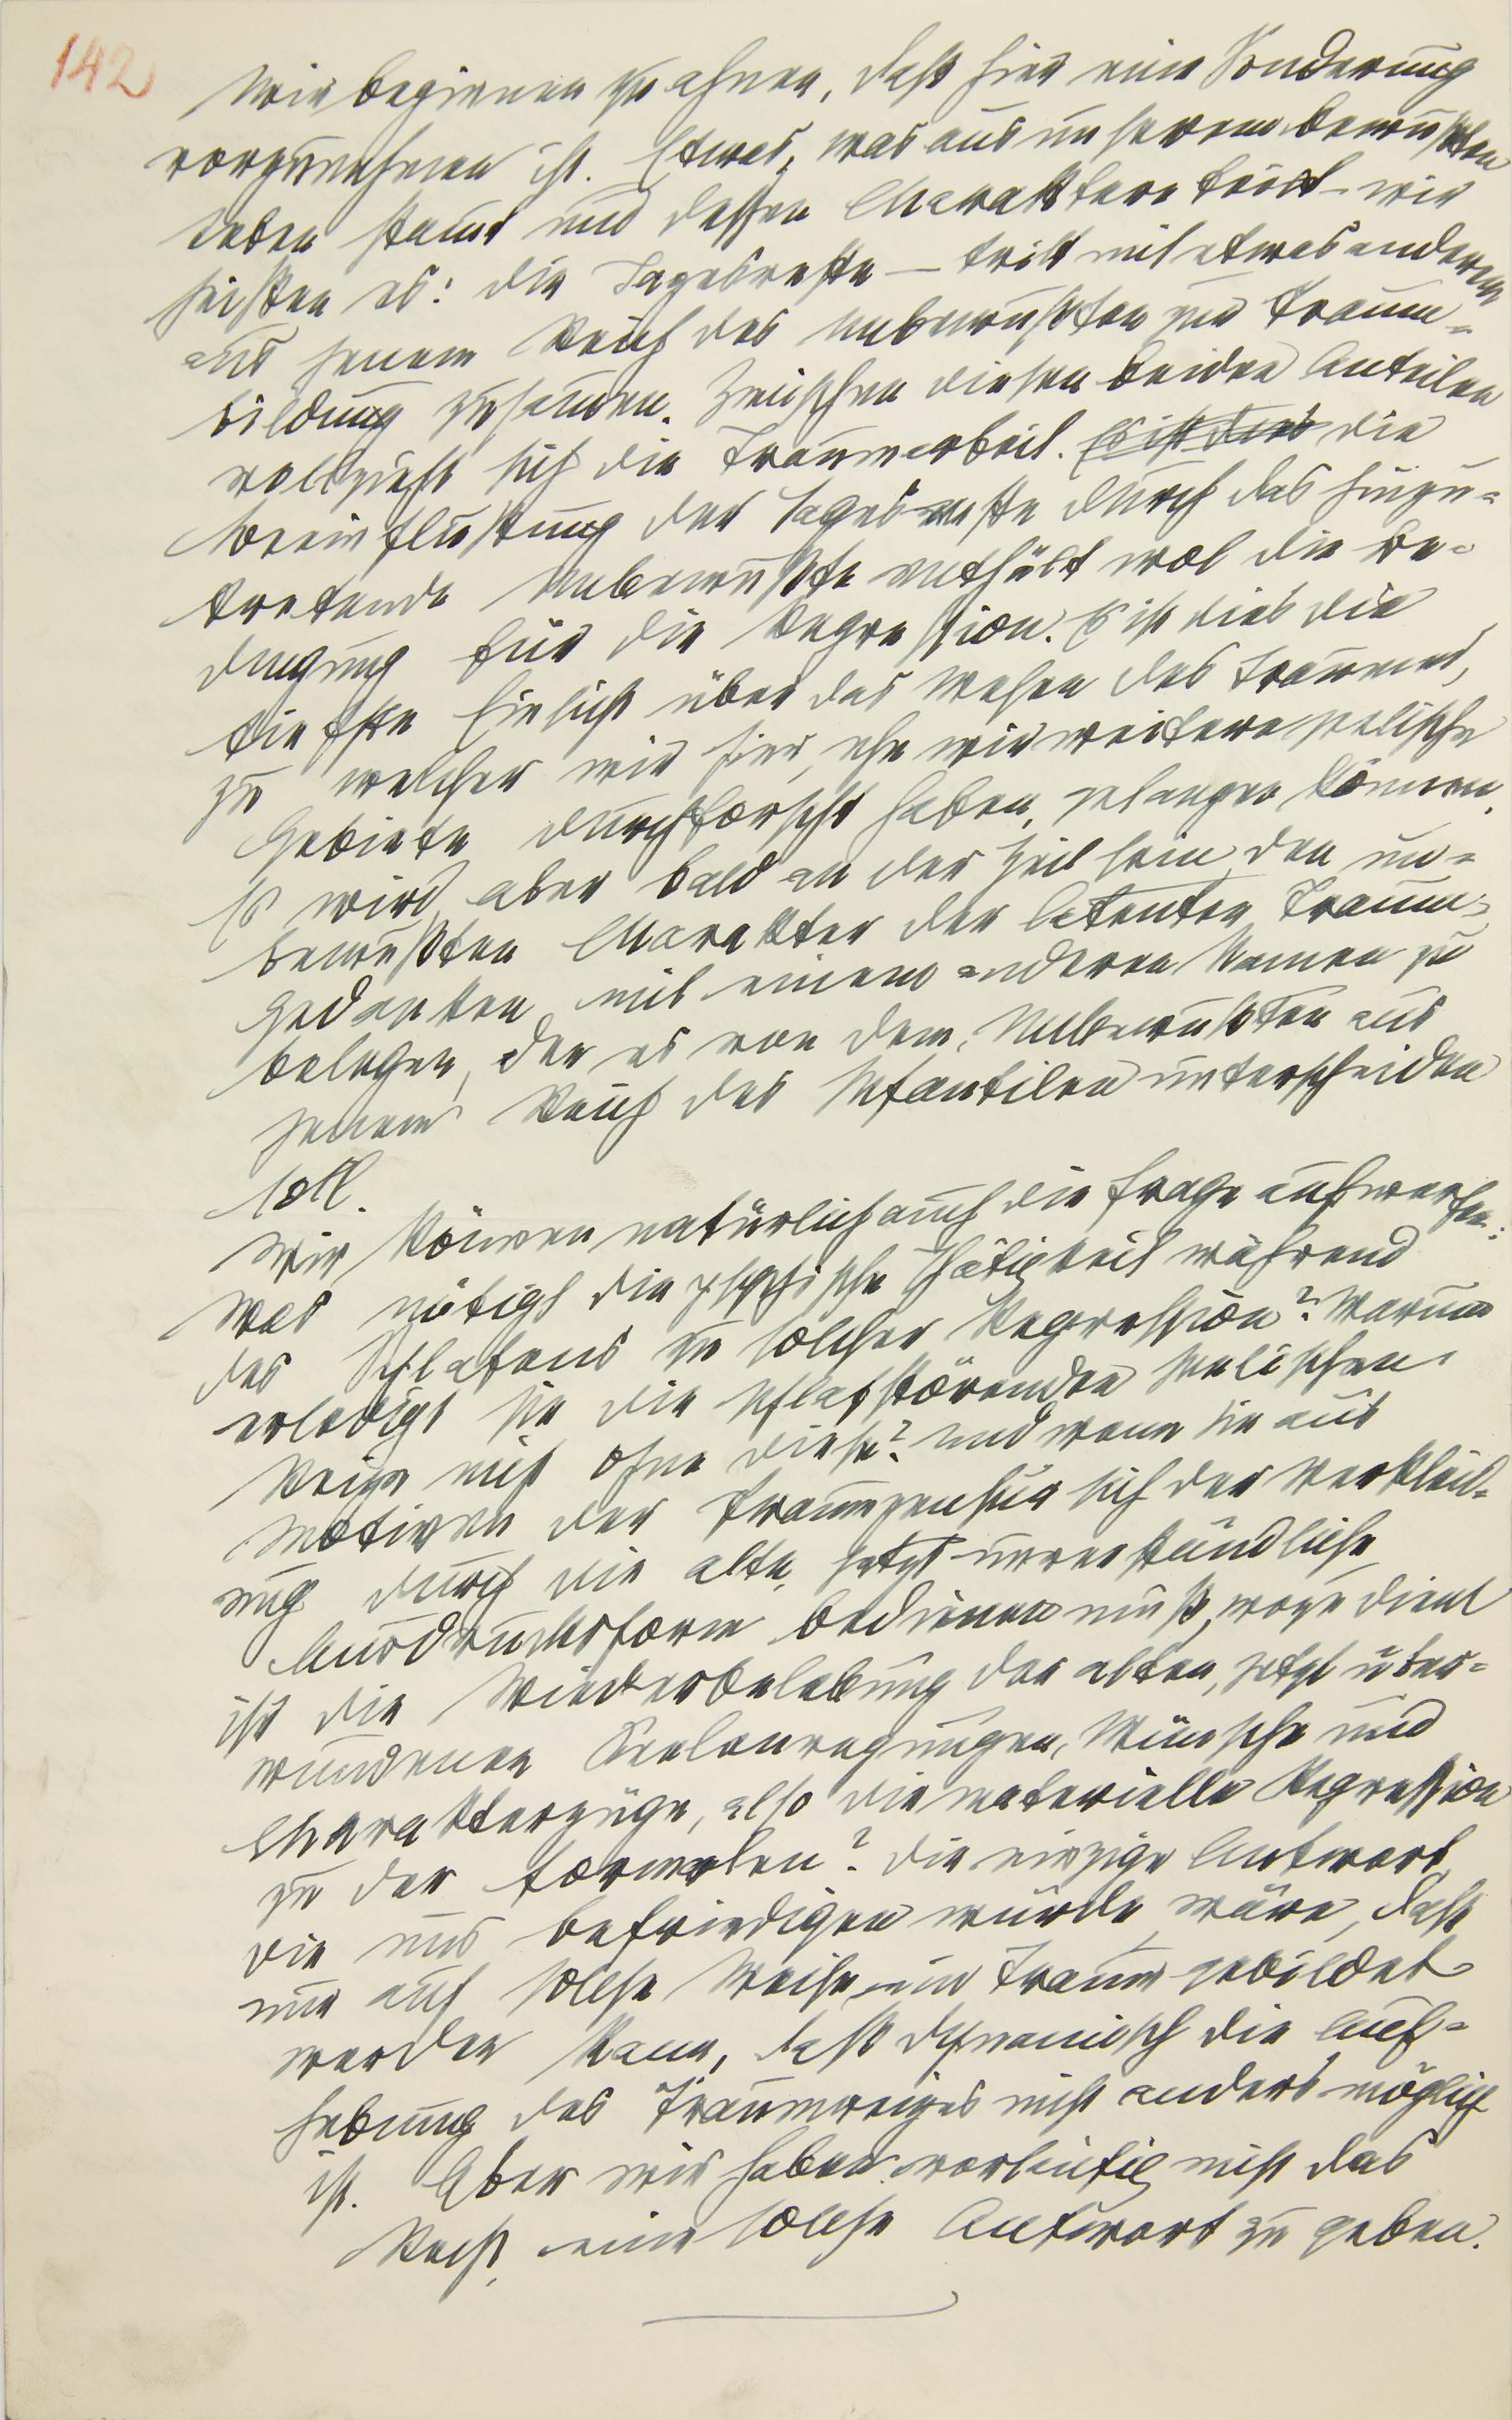 142
Wir beginnen zu ahnen, daß hier eine Sonderung
vorzunehmen ist. Etwas, was aus unserem bewußten
Leben stamt und dessen Charaktere teilt – wir
heißen es: die Tagesreste – tritt mit etwas anderem
aus jenem Reich des Unbewußten zur Traum-
bildung zusamen. Zwischen diesen beiden Anteilen
vollzieht sich die Traumarbeit. Es ist dies die
Beeinflussung der Tagesreste durch das hinzu-
tretende Unbewußte enthält wol die Be-
dingung für die Regression. Es ist dies die
tiefste Einsicht über das Wesen des Traumes,
zu welcher wir hier, ehe wir weitere seelische
Gebiete durchforscht haben, gelangen können.
Es wird aber bald an der Zeit sein, den un-
bewußten Charakter der latenten Traum-
gedanken mit einem anderen Namen zu
belegen, der es von dem Unbewußten aus
jenem Reich des Infantilen unterscheiden
soll.
Wir können natürlich auch die Frage aufwerfen:
Was nötigt die psychische Thätigkeit während
des Schlafens zu solcher Regression? Warum
erledigt sie die schlafstörenden seelischen
Reize nicht ohne diese? Und wenn sie aus
Motiven der Traumzensur sich der Verkleid-
ung durch die alte, jetzt unverständliche
Ausdrucksform bedienen muß, wozu dient
ihr die Wiederbelebung der alten, jetzt über-
wundenen Seelenregungen, Wünsche und
Charakterzüge, also die materielle Regression
zu der formalen? Die einzige Antwort,
die uns befriedigen würde, wäre, daß
nur auf solche Weise ein Traum gebildet
werden kann, daß dynamisch die Auf-
hebung des Traumreizes nicht anders möglich
ist. Aber wir haben vorläufig nicht das
Recht, eine solche Antwort zu geben.